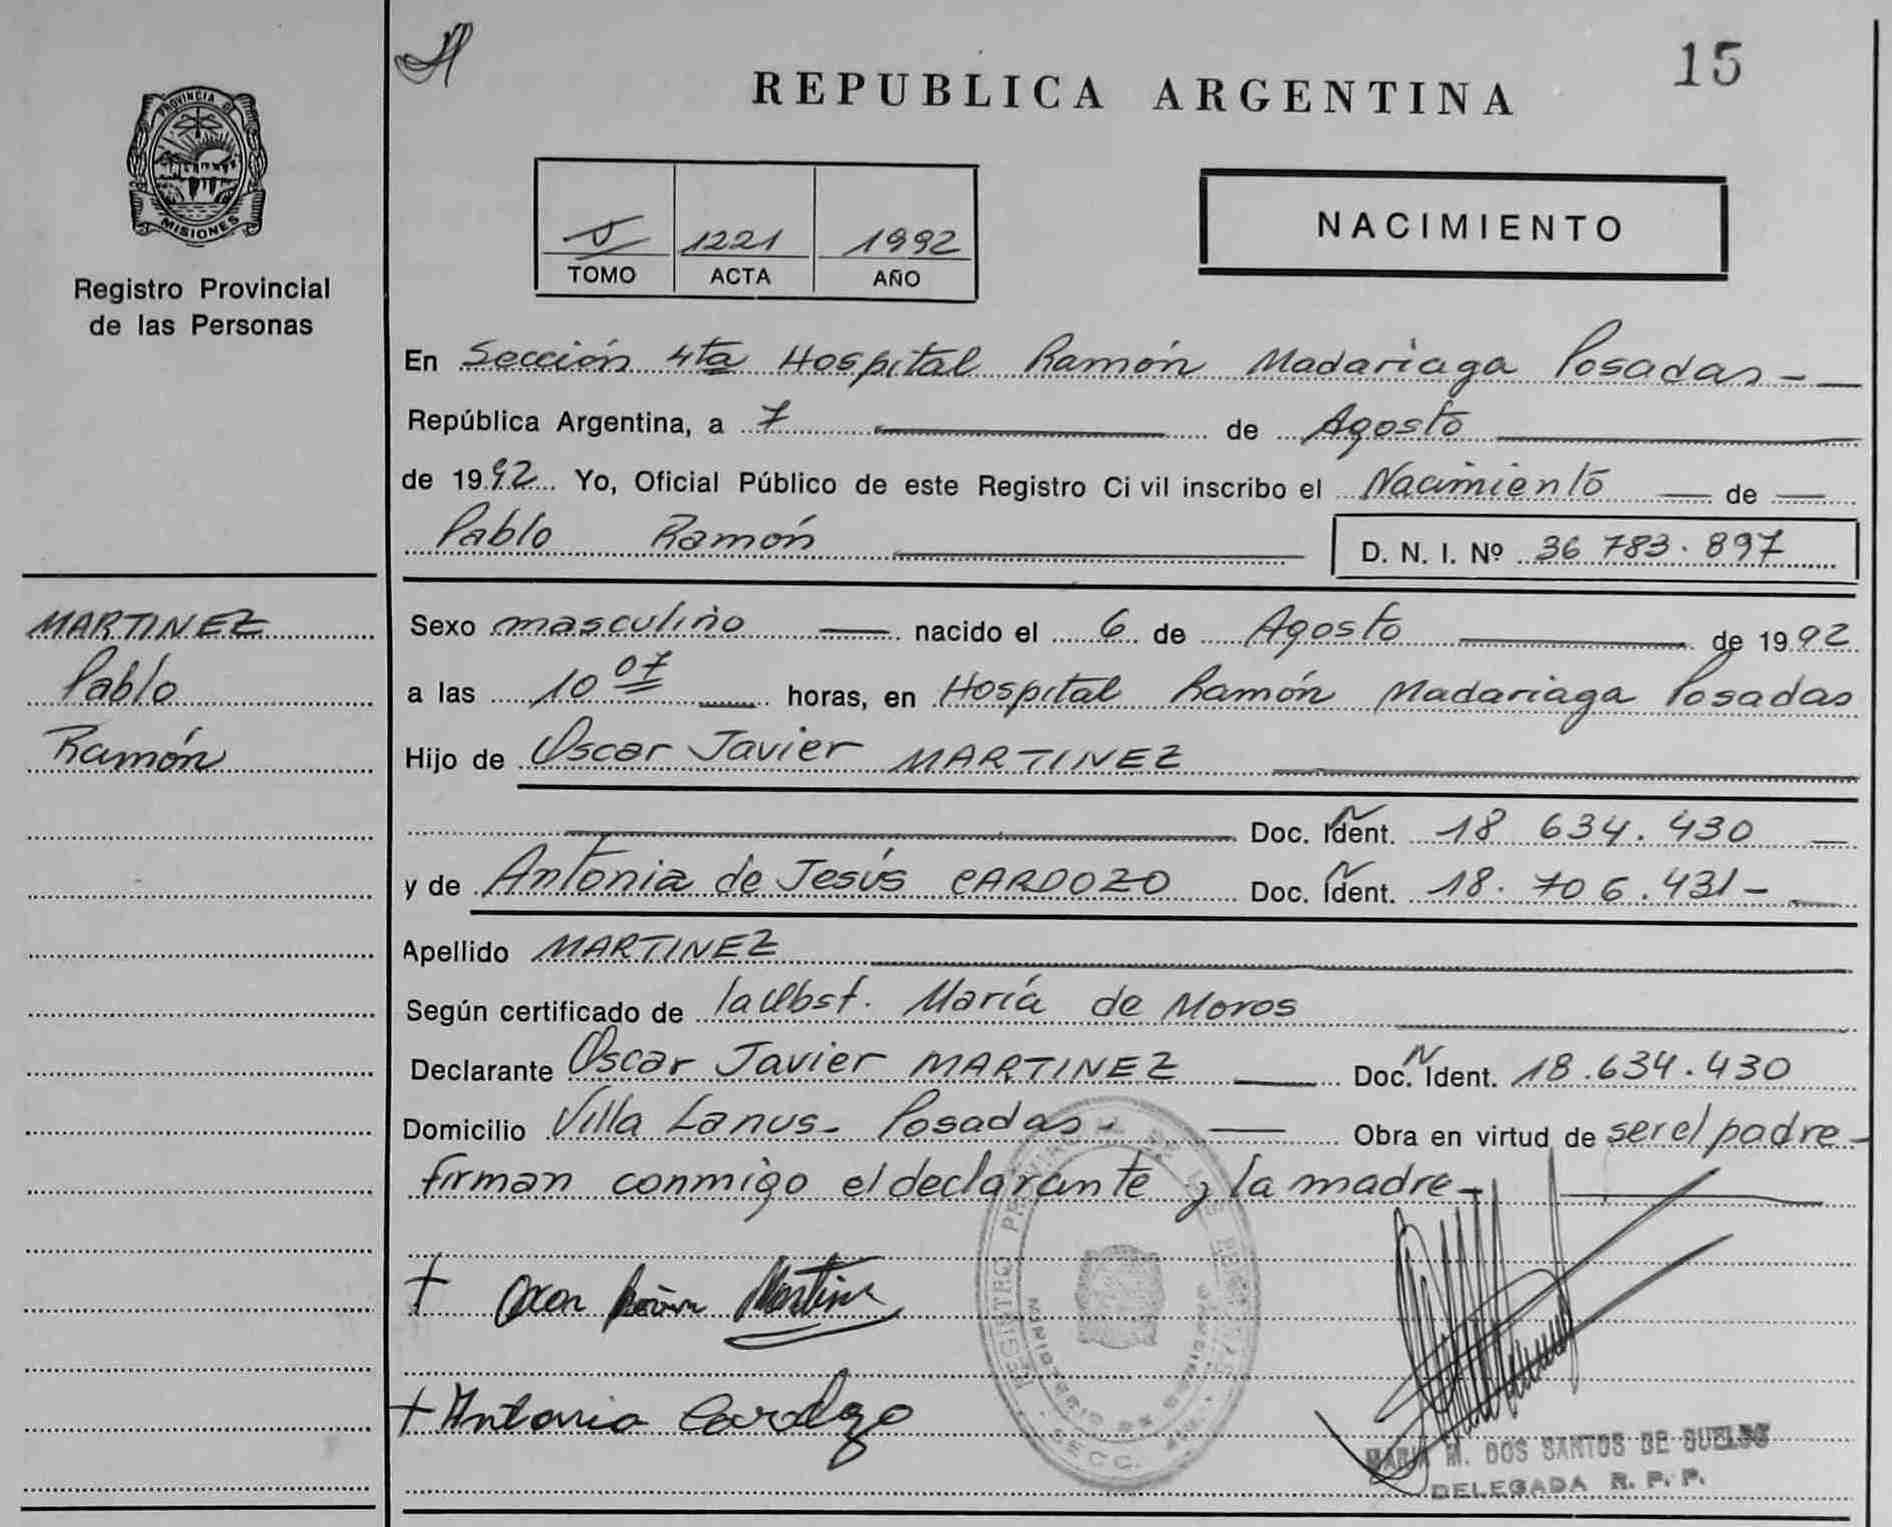 15
REPUBLICA ARGENTINA
PROVINCIA DE
MISIONES
Registro Provincial
de las Personas
1221 1992
TOMO ACTA AÑO
NACIMIENTO
En Sección 4ta Hospital Ramón Madariaga Posadas -
República Argentina, a 7 de Agosto
de 1992 Yo, Oficial Público de este Registro Ci vil inscribo el Nacimiento de
Pablo Ramón
D. N. I. Nº 36 783.897
MARTINEZ
Pablo
Ramón
Sexo masculino nacido el 6 de Agosto de 1992
a las 10 07 horas, en Hospital Ramón Madariaga Posadas
Hijo de Oscar Javier MARTINEZ
Doc. Ident. 18 634.430
y de Antonia de Jesús CARDOZO Doc. Ident. 18.706.431-
Apellido MARTINEZ
Según certificado de la Obst. María de Moros
Declarante Oscar Javier MARTINEZ Doc. Ident. 18.634.430
Domicilio Villa Lanus- Posadas- Obra en virtud de ser el padre-
firman conmigo el declarante y la madre-
Martine
Antonia Cardozo
REGISTRO
SECC.
MARIA M. DOS SANTOS DE
DELEGADA R. P. P.